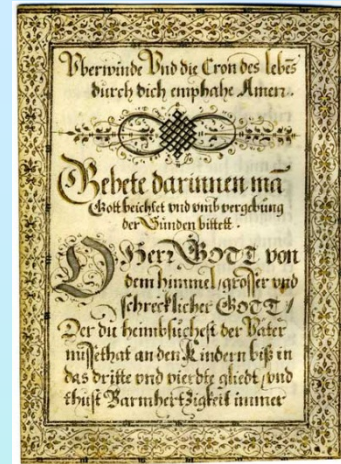 Vberwinde Vnd die Cron des lebēs
durch dich emphahe Amen.
Gebete darinnen mā
Gott beichtet vnd vmb vergebung
der Sünden bittett.
O Herr GOTT von
dem himmel/grosser vnd
schrecklicher GOTT/
Der du heimbsuchest der Vater
missethat an den Kindern biß in
das dritte vnd vierdte gliedt/vnd
thust Barmhertzigkeit immer